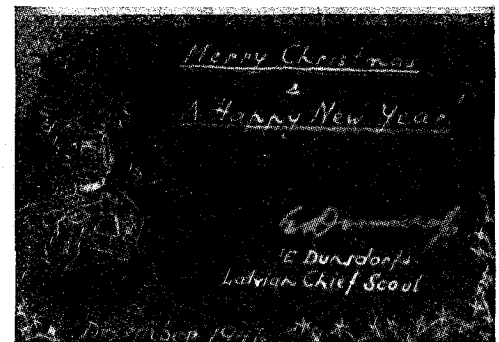 Merry Christmas
&
A Happy New Year
E Dunsdorfs
Latvian Chief Scout
December